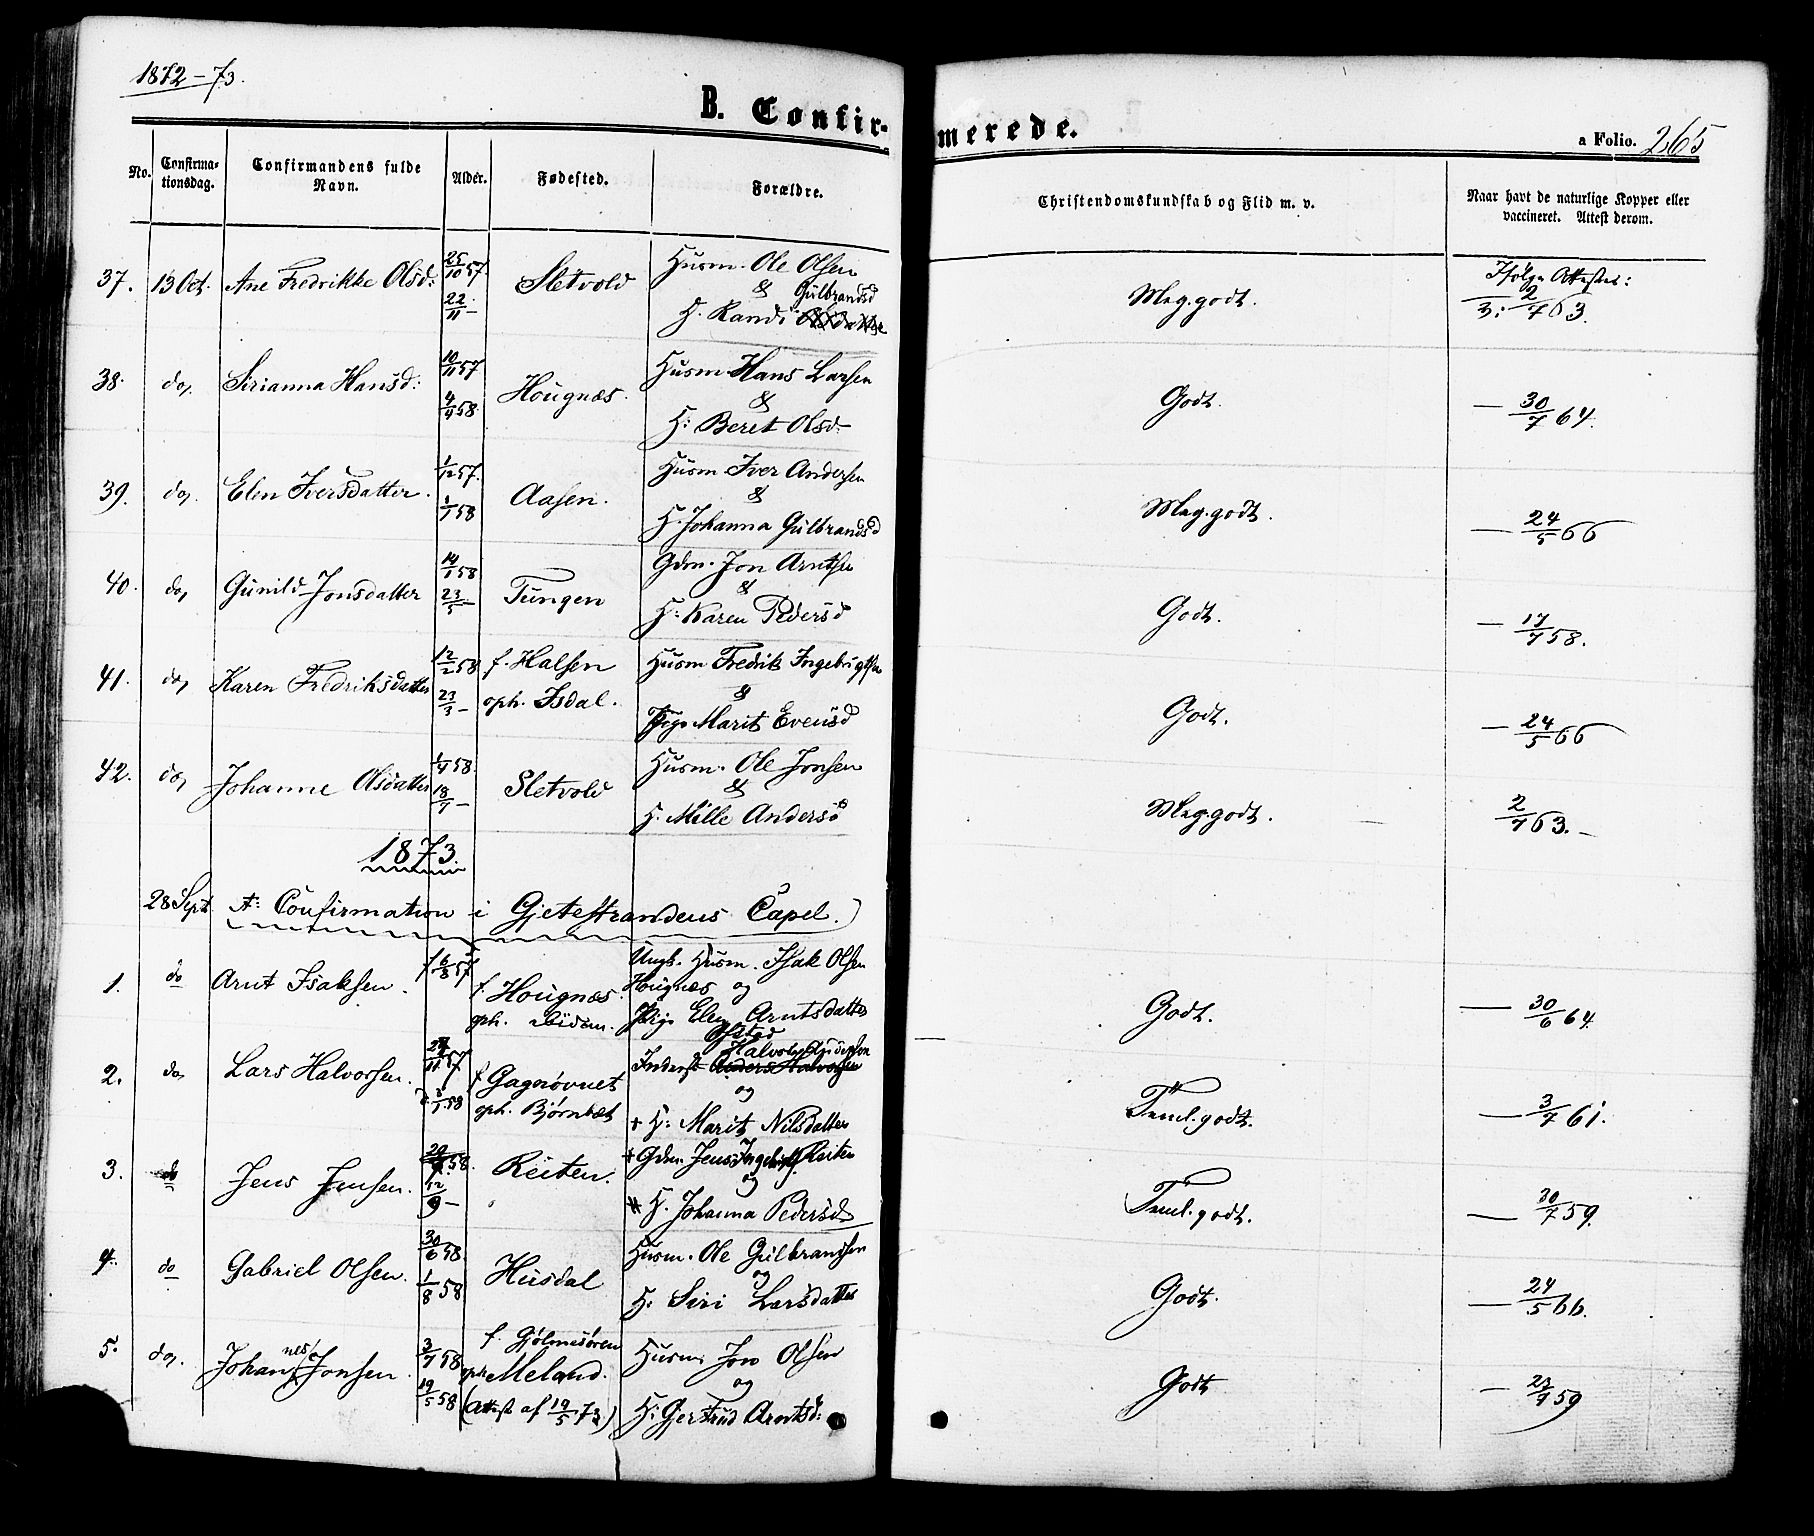 1872-73.
B. Confirmerede.
a Folio. 265
No.
Confirmationsdag.
Confirmandens fulde Navn.
Alder.
Fødested.
Forældre.
Christendomskundskab og Flid m. v.
Naar havt de naturlige Kopper eller vaccineret. Attest derom.
37. 13 Oct. Ane Fredrikke Olsd: 25/10 57. 22/11 - Sletvold Husm. Ole Olsen & H. Randi Gulbrandsd Meg.godt. Ifølge Attester: 2/7 63.
38. do, Sirianna Hansd: 10/11 57 4/4 58. Hougnæs. Husm Hans Larsen & H: Beret Olsd- Godt. - 30/7 64.
39. do. Elen Iversdatter. 1/12 57. 1/1 58 Aasen. Husm Iver Andersen & H. Johanna Gulbrandsd Meg.godt. - 24/5 66
40. do, Gunild Jonsdatter 14/1 58 23/5 - Tungen Gdm. Jon Arntsen & H: Karen Pedersd Godt. - 17/7 58.
41. do, Karen Fredriksdatter 12/2 58 23/3 - f. Halsen oph. Isdal. Husm Fredrik Ingebrigtsen & Pige Marit Evensd Godt. - 24/5 66
42. do, Johanne Olsdatter 1/4 58. 18/7 - Sletvold Husm. Ole Jonsen & H. Mille Andersd Meg.godt. 2/7 63.-
1873.
28 Sept A: Confirmation i Gjetestrandens Capel.)
1. do Arnt Isaksen. f 6/8 57 f. Hougnæs. oph. ibidem. Ungk. Husm. Isak Olsen Hougnæs og Pige Elen Arntsdatter Godt. - 30/6 64.
2. do, Lars Halvorsen. 24/11 57 1/1 58 f. Gagnøvnet oph. Bjørnbæt Inderst Anders Halvorsen Halvor Andersen og + H: Marit Nilsdatter Teml.godt. - 3/7 61.
3. do Jens Jensen. 58. 12/9 - Reiten. + Gdm. Jens Ingebrigts. Reiten og H. Johanna Pedersd Teml.godt. - 30/7 59.
4. do Gabriel Olsen. 30/6 58. 1/8 58 Husdal Husm. Ole Gulbrandsen og H: Siri Larsdatter Godt. - 24/5 66.
5. do. Johannes Jonsen. 3/7 58 19/5 58 f. Gjølmesøren oph. Meland. (Attest af 19/5 73) Husm. Jon Olsen og H: Gjertrud Arntsd: Godt - 59